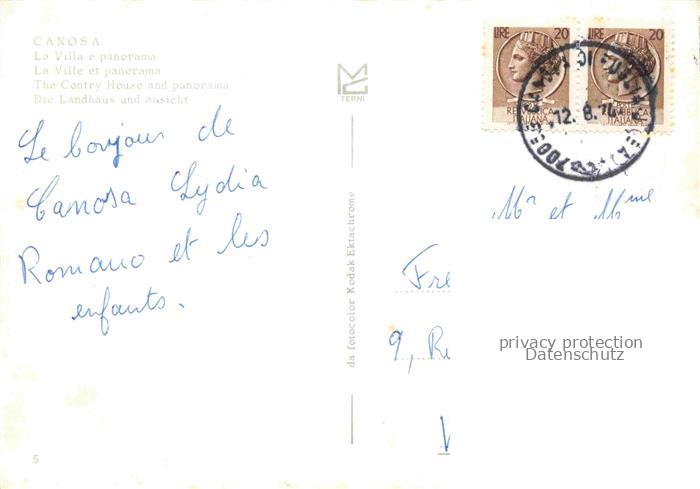 CANOSA
La Villa e panorama
La Ville et panorama
The Contry House and panorama
Die Landhaus und ansicht
TERNI
LIRE 20
LIRE 20
REPUBBLICA
ITALIANA
ITALIANA
12. 8. 74
Le bonjour de
Canosa Lydia
Romano et les
enfants.
da fotocolor Kodak Ektachrome
Mr et Mme
Fre
9, Re
V
privacy protection
Datenschutz
5